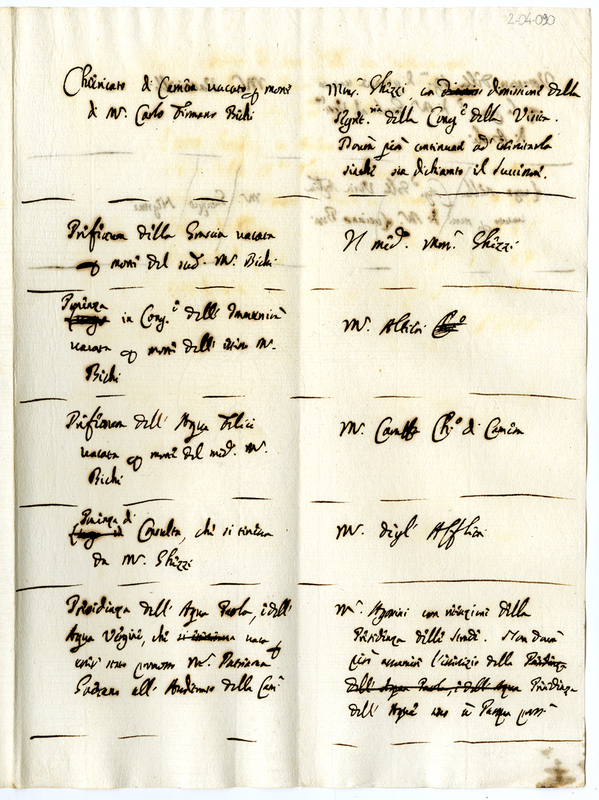 2-04-090
Chiericato di Camera vacato p morte
di Mr. Carlo Firmano Bichi
Monsr. Ghizzi, con dimissione della
Segret.ria della Cong.e della Visita.
Dovrà però continuare ad esercitarla
sinchè sia dichiarato il Successore.
Prefettura della Grascia vacata
p morte del sud. Mr. Bichi
Il med. Monsr. Ghizzi
Ponenza
in Cong.e dell' Immunità
vacata p morte dell' istesso Mr.
Bichi
Mr. Altieri
Prefettura dell' Acqua Felice
vacata p morte del med. Mr.
Bichi
Mr. Caraffa Ch.o di Camera
Ponenza di
Consulta, che si teneva
da Mr. Ghizzi
Mr. degl' Afflitti
Presidenza dell' Acqua Paola, e dell'
Acqua Vergine, che vaca p
esser stato promosso Mr.
all' Auditorato della Cam
Mr. con ritenzione della
Presidenza delle Strade. Non dovrà
però assumere l'esercizio della Presidenza
dell' Acqua Paola, e dell' Acqua Presidenza
dell' Acque a Pasqua